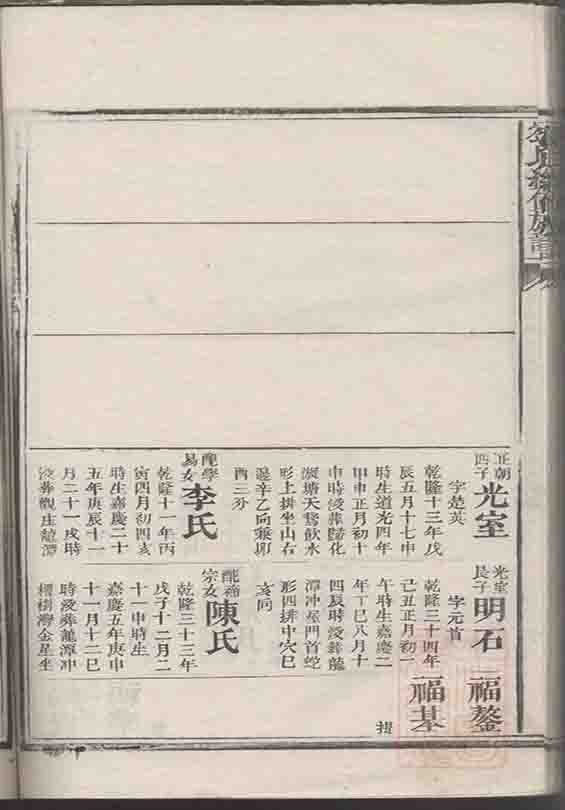 正朝
四子
光室
字楚英
乾隆十三年戊
辰五月十七申
時生道光四年
甲申正月初十
申時歿葬歸化
天鵞飲水
形上排坐山右
辛乙向兼卯
酉三分
配學
易女
李氏
乾隆十一年丙
寅四月初四亥
時生嘉慶二十
五年庚辰十一
月二十一戌時
歿葬觀庄
光室
長子
明石
字元首
乾隆三十四年
己丑正月初一
午時生嘉慶二
年丁巳八月十
四辰時歿葬龍
潭冲屋門首蛇
形四排中穴巳
亥向
配
宗女
陳氏
乾隆三十三年
戊子十二月二
十一申時生
嘉慶五年庚申
十一月十二巳
時歿葬龍潭冲
樹灣金星坐
福鰲
福基